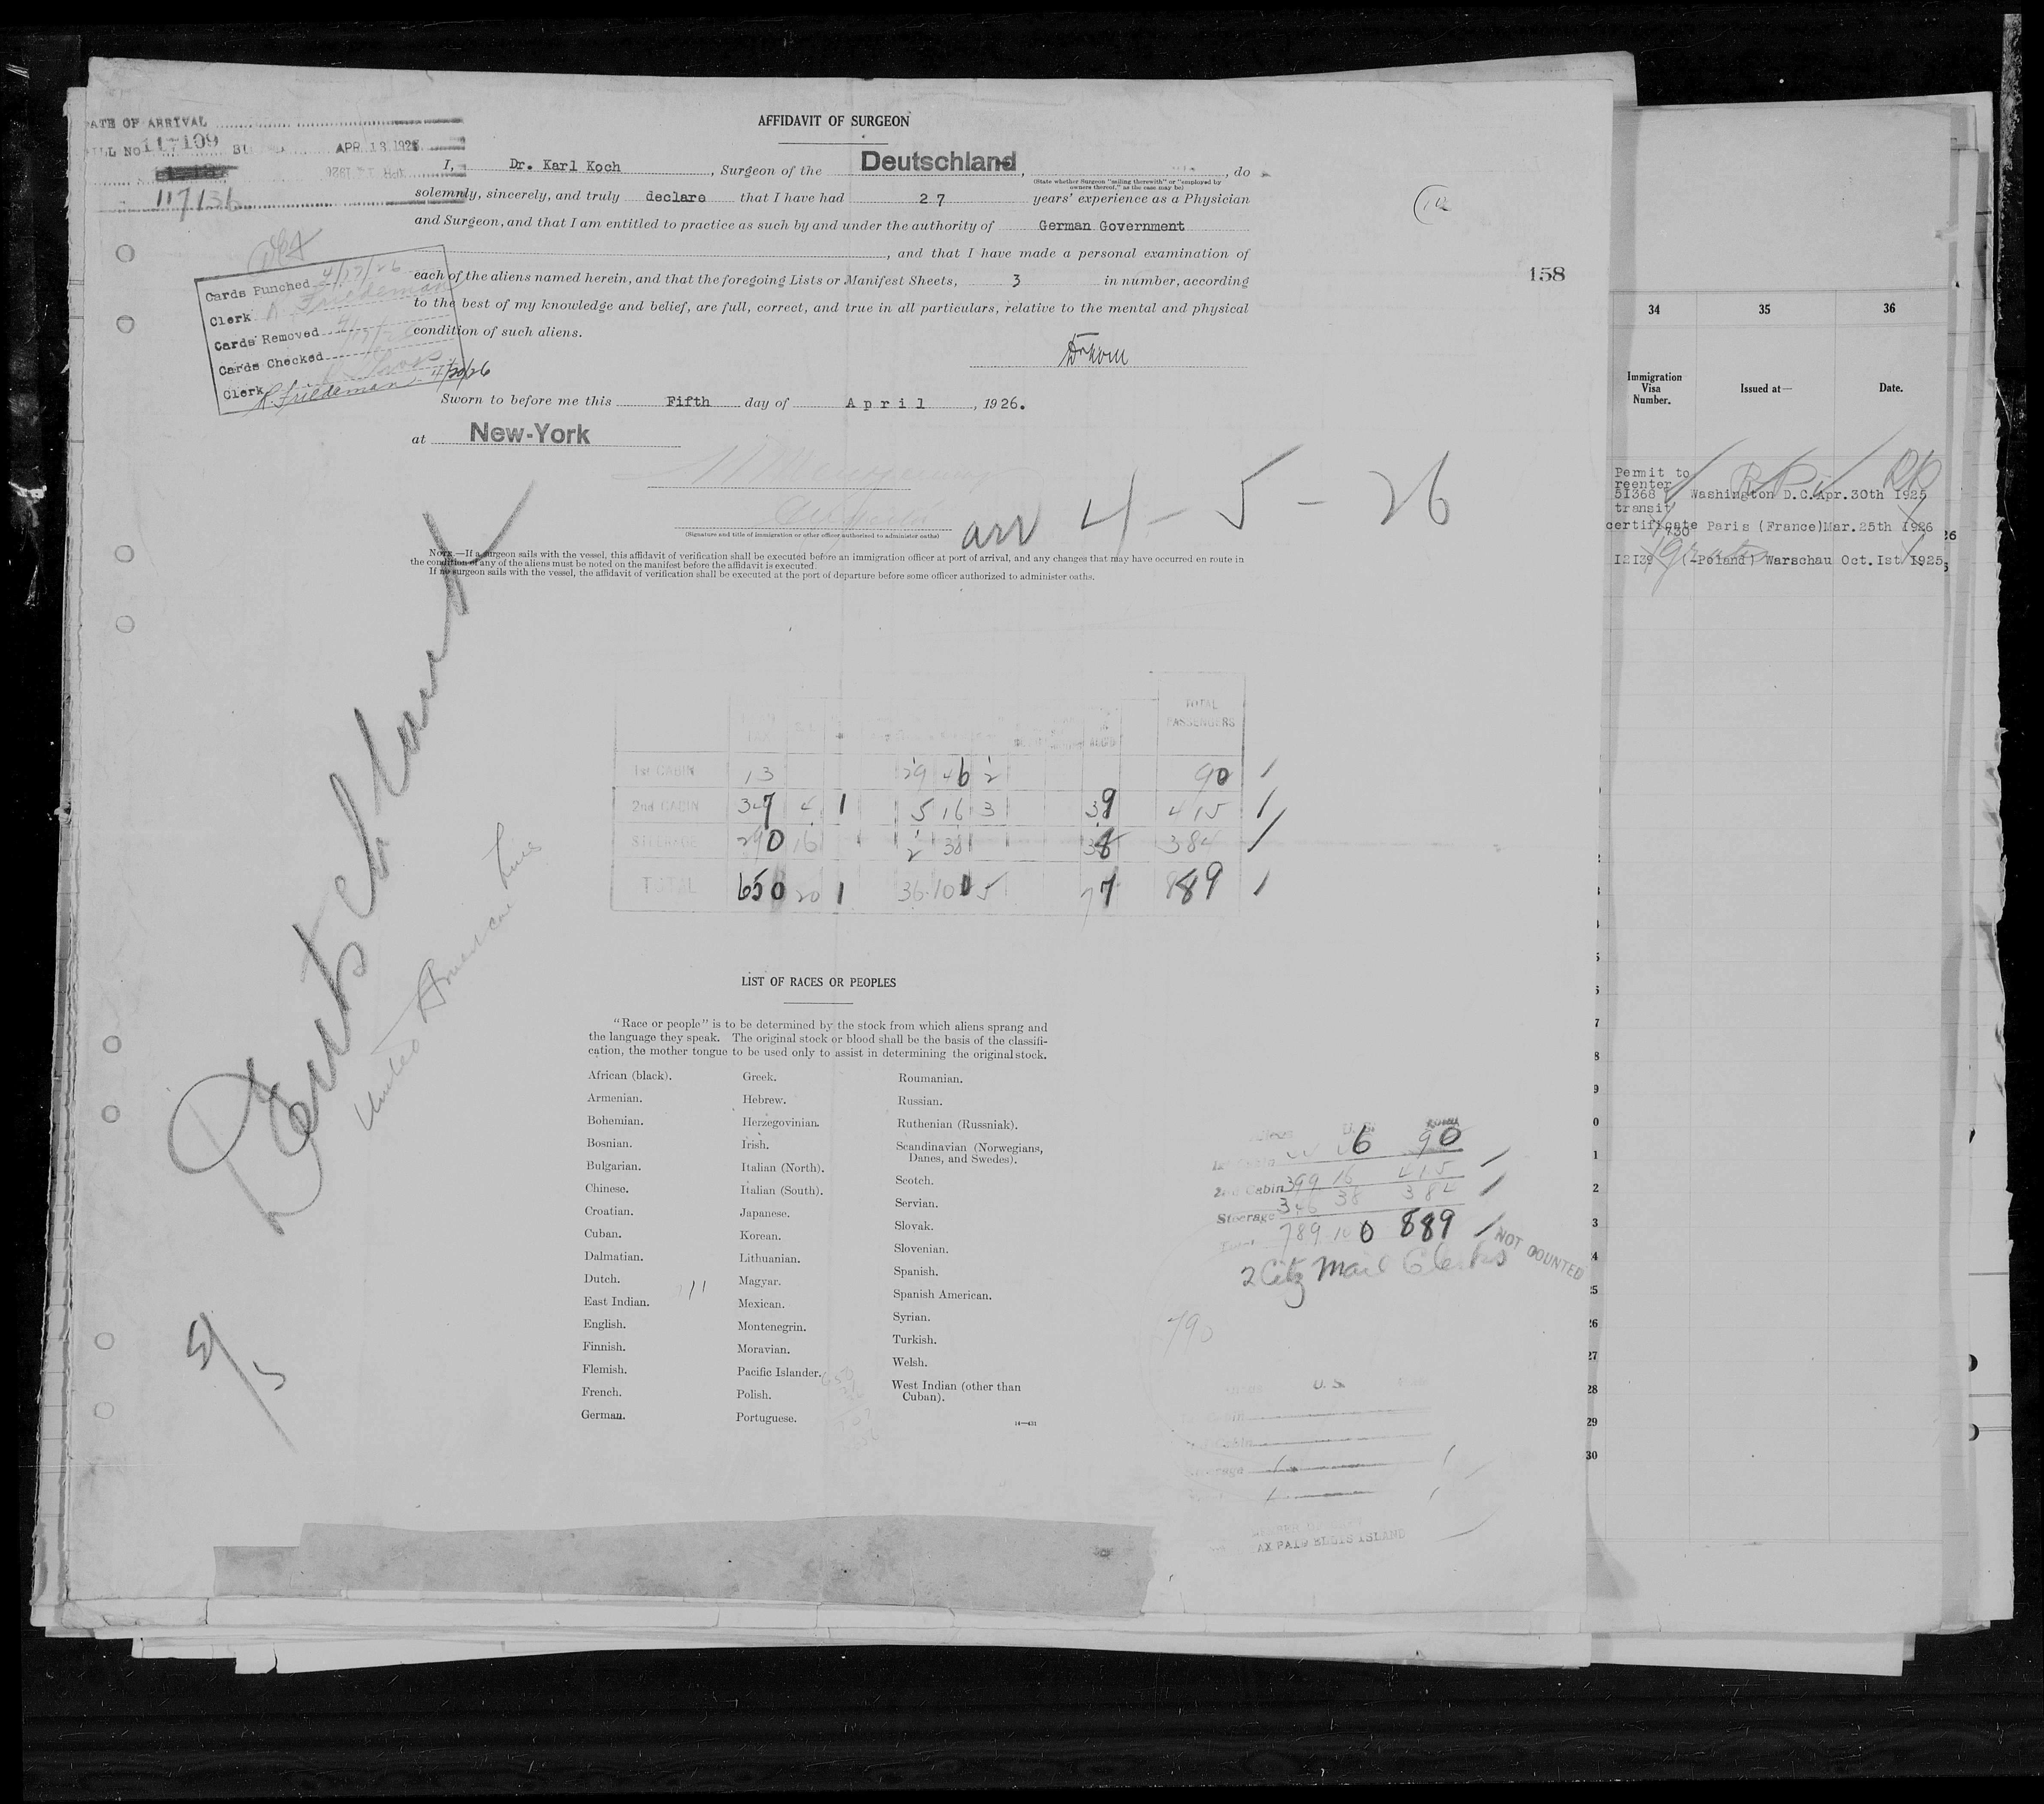 AFFIDAVIT OF SURGEON
ATE OF ARRIVAL
LL NO 117109
APR 13 1926
117136
I, Dr. Karl Koch, Surgeon of the Deutschland, do
(State whether Surgeon "sailing therewith" or "employed by
owners thereof," as the case may be)
solemnly, sincerely, and truly declare that I have had 27 years' experience as a Physician
and Surgeon, and that I am entitled to practice as such by and under the authority of German Government
, and that I have made a personal examination of
each of the aliens named herein, and that the foregoing Lists or Manifest Sheets, 3 in number, according
to the best of my knowledge and belief, are full, correct, and true in all particulars, relative to the mental and physical
condition of such aliens.
Cards Punched 4/17/26
Clerk R. Friedeman
Cards Removed
Cards Checked
Clerk R. Friedeman 4/20/26
158
Sworn to before me this Fifth day of April, 1926.
at New-York
arr 4-5-26
(Signature and title of immigration or other officer authorized to administer oaths)
NOTE.—If a surgeon sails with the vessel, this affidavit of verification shall be executed before an immigration officer at port of arrival, and any changes that may have occurred en route in
the condition of any of the aliens must be noted on the manifest before the affidavit is executed.
If no surgeon sails with the vessel, the affidavit of verification shall be executed at the port of departure before some officer authorized to administer oaths.
Deutschland
United American Lines
4/5
TAX
TOTAL
PASSENGERS
1st CABIN 13 29 46 2 90
2nd CABIN 347 4 1 5 16 3 39 415
STEERAGE 290 16 2 38 38 384
TOTAL 650 20 1 36 100 5 77 889
LIST OF RACES OR PEOPLES
"Race or people" is to be determined by the stock from which aliens sprang and
the language they speak. The original stock or blood shall be the basis of the classifi-
cation, the mother tongue to be used only to assist in determining the original stock.
African (black).
Armenian.
Bohemian.
Bosnian.
Bulgarian.
Chinese.
Croatian.
Cuban.
Dalmatian.
Dutch.
East Indian.
English.
Finnish.
Flemish.
French.
German.
Greek.
Hebrew.
Herzegovinian.
Irish.
Italian (North).
Italian (South).
Japanese.
Korean.
Lithuanian.
Magyar.
Mexican.
Montenegrin.
Moravian.
Pacific Islander.
Polish.
Portuguese.
Roumanian.
Russian.
Ruthenian (Russniak).
Scandinavian (Norwegians,
Danes, and Swedes).
Scotch.
Servian.
Slovak.
Slovenian.
Spanish.
Spanish American.
Syrian.
Turkish.
Welsh.
West Indian (other than
Cuban).
14—431
U. S.
1st Cabin 90
2nd Cabin 399 16 415
Steerage 346 38 384
Total 789 100 889
NOT COUNTED
2 Citz Mail Clerks
790
U. S.
Steerage 1
1
TAX PAID ELLIS ISLAND
34 35 36
Immigration
Visa
Number.
Issued at—
Date.
Permit to
reenter
51368 Washington D.C. Apr. 30th 1925
transit
certificate Paris (France) Mar. 25th 1926
1730
12139 (Poland) Warschau Oct. 1st 1925
7
8
9
0
1
2
3
4
25
26
27
28
29
30